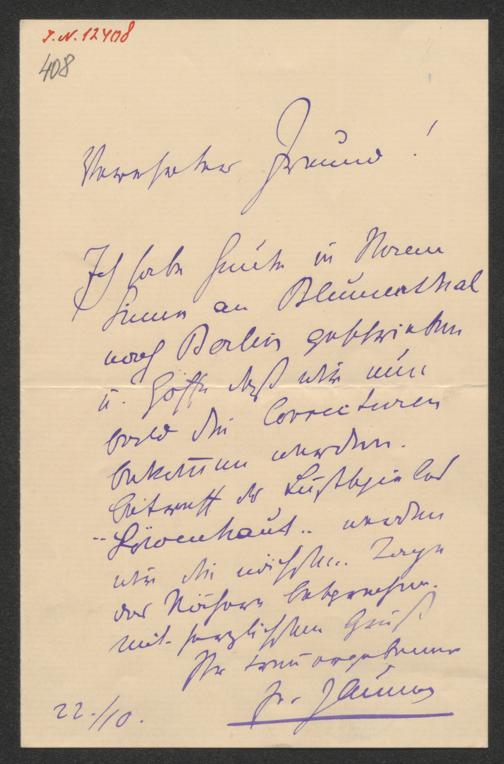 J.N. 12408
408
Verehrter Freund!
Ich habe heute in Ihrem
Sinne an Blumenthal
nach Berlin geschrieben
u. hoffe daß wir nun
bald die Correcturen
bekommen werden.
Betreff des Lustspieles
"Löwenhaut" werden
wir die nächsten Tage
das Nähere besprechen.
Mit herzlichstem Gruß
Ihr treu ergebener
Fr. Jauner
22./10.